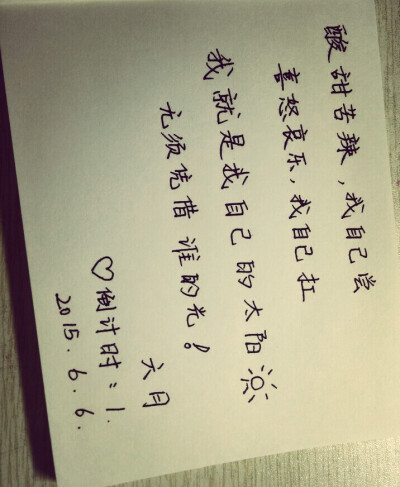 酸甜苦辣，我自己尝
喜怒哀乐，我自己扛
我就是我自己的太阳
无须凭借谁的光！
六月
♡倒计时：1.
2015.6.6.